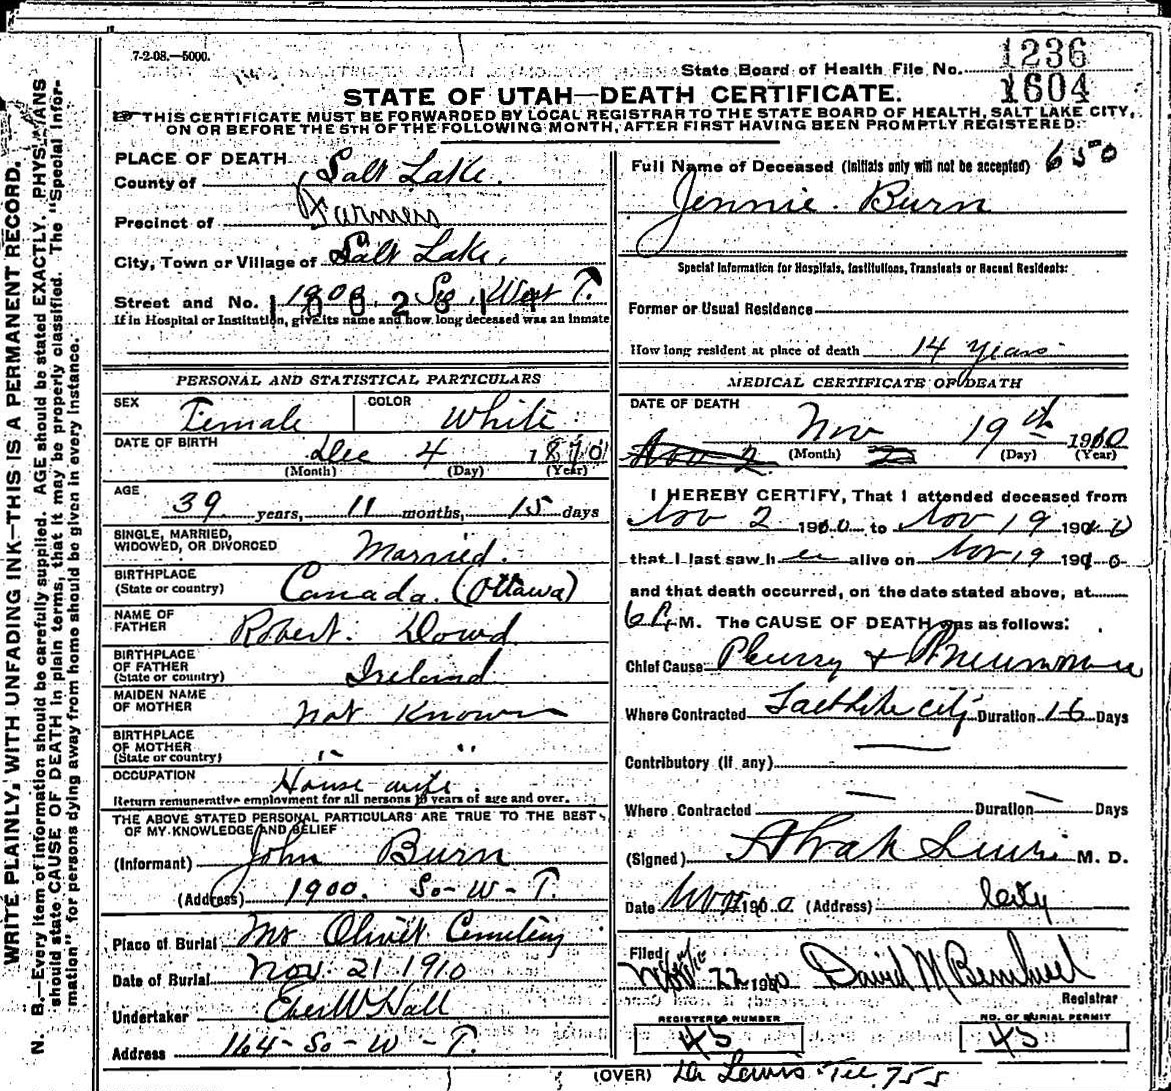 7-2-08.—5000.
State Board of Health File No. 1236
1604
STATE OF UTAH—DEATH CERTIFICATE.
☞ THIS CERTIFICATE MUST BE FORWARDED BY LOCAL REGISTRAR TO THE STATE BOARD OF HEALTH, SALT LAKE CITY,
ON OR BEFORE THE 5TH OF THE FOLLOWING MONTH, AFTER FIRST HAVING BEEN PROMPTLY REGISTERED.
PLACE OF DEATH
County of Salt Lake.
Precinct of Farmers
City, Town or Village of Salt Lake.
Street and No. 1900. So. West T.
If in Hospital or Institution, give its name and how long deceased was an inmate
PERSONAL AND STATISTICAL PARTICULARS
SEX Female COLOR White
DATE OF BIRTH Dec 4 1870
(Month) (Day) (Year)
AGE 39 years, 11 months, 15 days
SINGLE, MARRIED,
WIDOWED, OR DIVORCED Married.
BIRTHPLACE
(State or country) Canada. (Ottawa)
NAME OF
FATHER Robert. Dowd
BIRTHPLACE
OF FATHER
(State or country) Ireland
MAIDEN NAME
OF MOTHER not Known
BIRTHPLACE
OF MOTHER
(State or country) " "
OCCUPATION House wife
Return remunerative employment for all persons 10 years of age and over.
THE ABOVE STATED PERSONAL PARTICULARS ARE TRUE TO THE BEST
OF MY KNOWLEDGE AND BELIEF
(Informant) John Burn
(Address) 1900. So-W-T.
Place of Burial Mt Olivet Cemetery
Date of Burial Nov. 21 1910
Undertaker Eber W Hall
Address 164-So-W-T.
Full Name of Deceased (Initials only will not be accepted) 650
Jennie. Burn
Special Information for Hospitals, Institutions, Transients or Recent Residents:
Former or Usual Residence
How long resident at place of death 14 Years
MEDICAL CERTIFICATE OF DEATH
DATE OF DEATH
Nov 19th 1910
Nov 2 (Month) (Day) (Year)
I HEREBY CERTIFY, That I attended deceased from
Nov 2 1910 to Nov 19 1910
that I last saw her alive on Nov 19 1910
and that death occurred, on the date stated above, at
6 P. M. The CAUSE OF DEATH was as follows:
Chief Cause Pleurisy & Pneumonia
Where Contracted Salt Lake City Duration 16 Days
Contributory (If any)
Where Contracted Duration Days
(Signed) Lewis M. D.
Date Nov 1910 (Address) City
Filed
Nov 22 1910 David M
Registrar
REGISTERED NUMBER
45
NO. OF BURIAL PERMIT
45
(OVER) Dr Lewis Tel. 755
WRITE PLAINLY, WITH UNFADING INK—THIS IS A PERMANENT RECORD.
N. B.—Every item of information should be carefully supplied. AGE should be stated EXACTLY. PHYSICIANS
should state CAUSE OF DEATH in plain terms, that it may be properly classified. The "Special Infor-
mation" for persons dying away from home should be given in every instance.